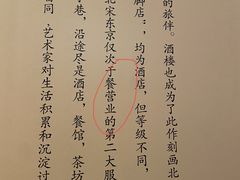 的旅伴。酒楼也成为了此作刻画北
脚店：，均为酒店，但等级不同，
北宋东京仅次于餐营业的第二大服
巷，沿途尽是酒店，餐馆，茶坊
同，艺术家对生活积累和沉淀过